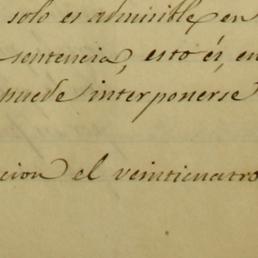 solo es admisible en
sentencia, esto es, en
puede interponerse
cion el veinticuatro